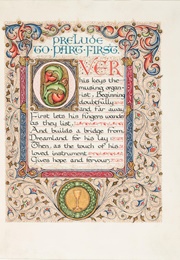 PRELUDE
TO PART FIRST.
OVER
his keys the
musing organ-
ist, Beginning
doubtfully
and far away
First lets his fingers wander
as they list,
And builds a bridge from
Dreamland for his lay
Then, as the touch of his
loved instrument
Gives hope and fervour,